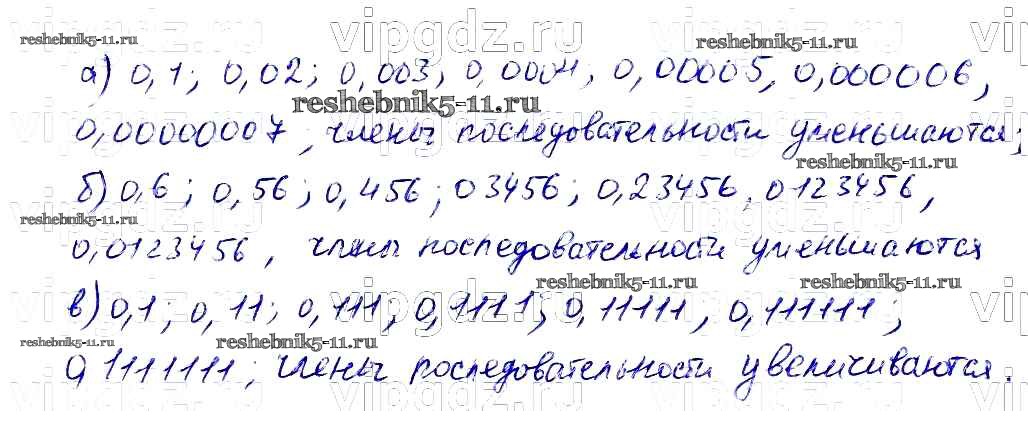 vipgdz.ru vipgdz.ru vipgdz.ru
reshebnik5-11.ru reshebnik5-11.ru
а) 0,1; 0,02; 0,003; 0,0004; 0,00005, 0,000006,
reshebnik5-11.ru
0,00000007, члены последовательности уменьшаются;
reshebnik5-11.ru
б) 0,6; 0,56; 0,456; 03456; 0,23456, 0123456,
reshebnik5-11.ru
0,0123456, члены последовательности уменьшаются
reshebnik5-11.ru reshebnik5-11.ru
в) 0,1; 0,11; 0,111; 0,1111; 0,11111, 0,111111;
reshebnik5-11.ru reshebnik5-11.ru
0,1111111; члены последовательности увеличиваются.
vipgdz.ru vipgdz.ru vipgdz.ru